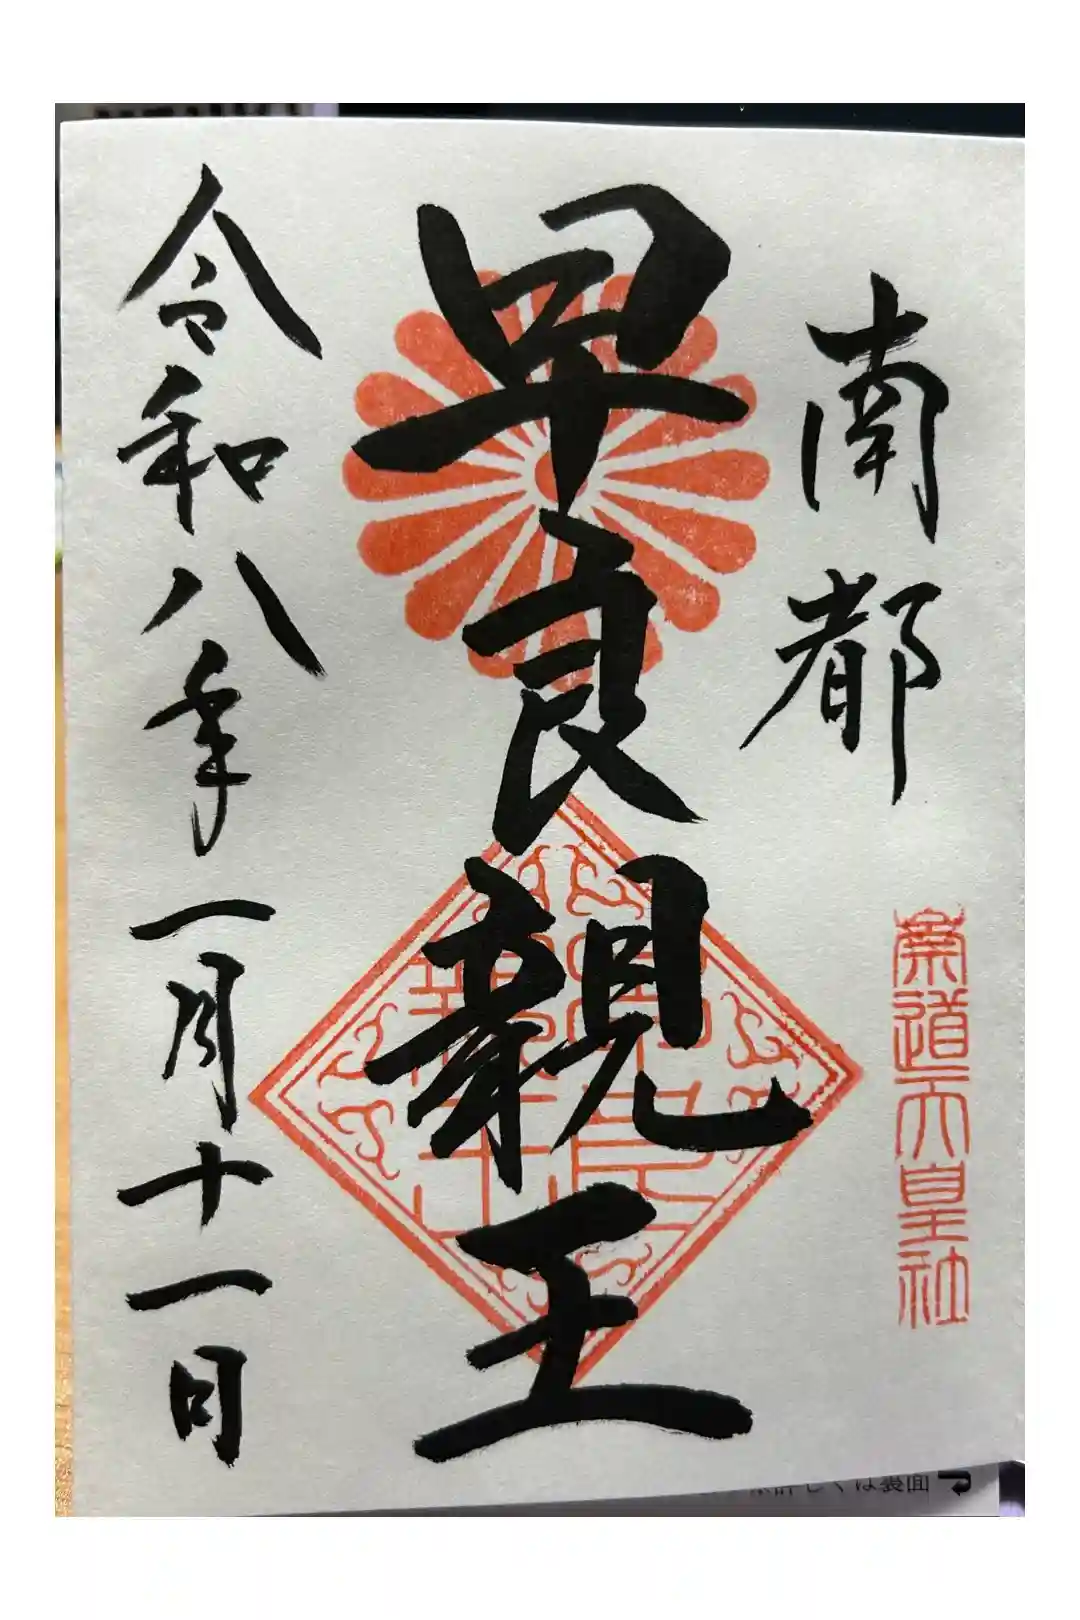 南都
崇道天皇社
早良親王
令和八年一月十一日
くは裏面